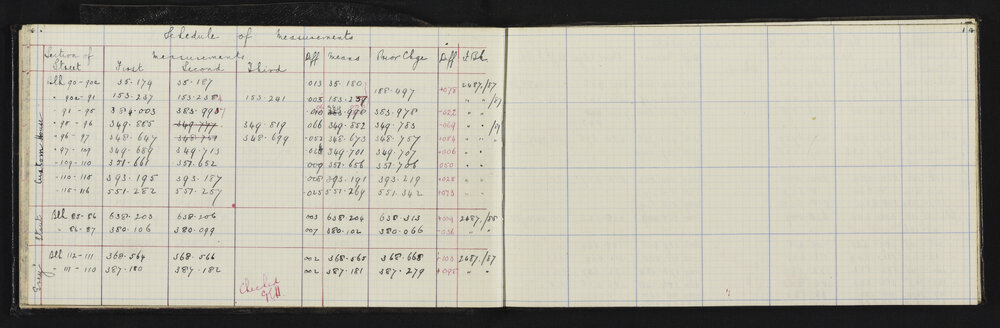 Schedule of Measurements
Section of Street Measurements Diff Means Prior Chge Diff F.Bk.
First Second Third
Blk 90-90a 35.174 35.187 013 35.180 188.497 +078 2487/57
" 90a-91 153.237 153.238 153.241 003 153.239 " " /57
" 91-95 384.003 383.993 010 383.998 383.978 -022 " "
" 95-96 349.885 349.777 349.819 066 349.852 349.783 -069 " " /19
" 96-97 348.647 348.699 052 348.673 348.757 +084 " "
" 97-109 349.689 349.713 349.701 349.707 +006 " "
" 109-110 351.661 351.652 009 351.656 351.706 050 " "
" 110-115 393.195 393.187 008 393.191 393.219 +028 " "
" 115-116 551.282 551.257 025 551.269 551.342 +073 " "
Custom House Street
Blk 85-86 638.203 638.206 003 638.204 638.313 2487/58
" 86-87 380.106 380.099 007 380.102 380.066 -036 " "
Blk 112-111 368.564 368.566 002 368.565 368.668 +103 2487/57
" 111-110 387.180 387.182 002 387.181 387.279 +098 " "
Checked